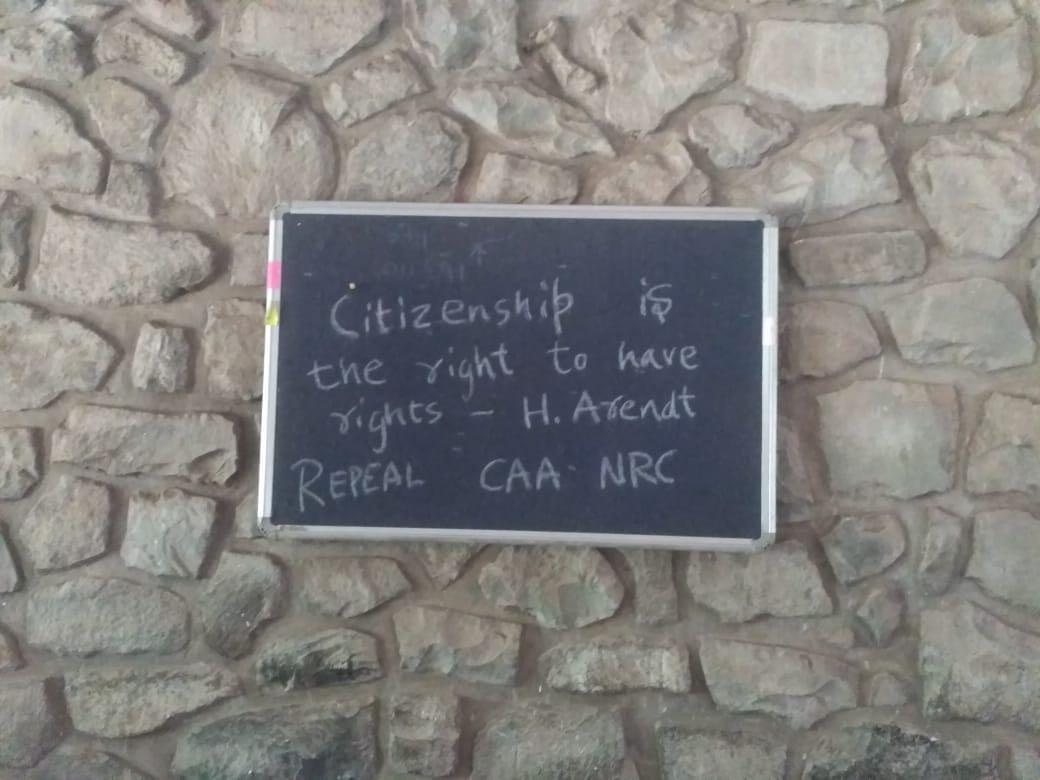 Citizenship is
the right to have
rights - H. Arendt
REPEAL CAA NRC